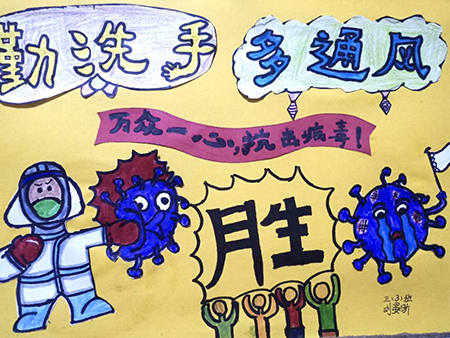 勤洗手 多通风
万众一心,抗击病毒!
胜
三(3)班